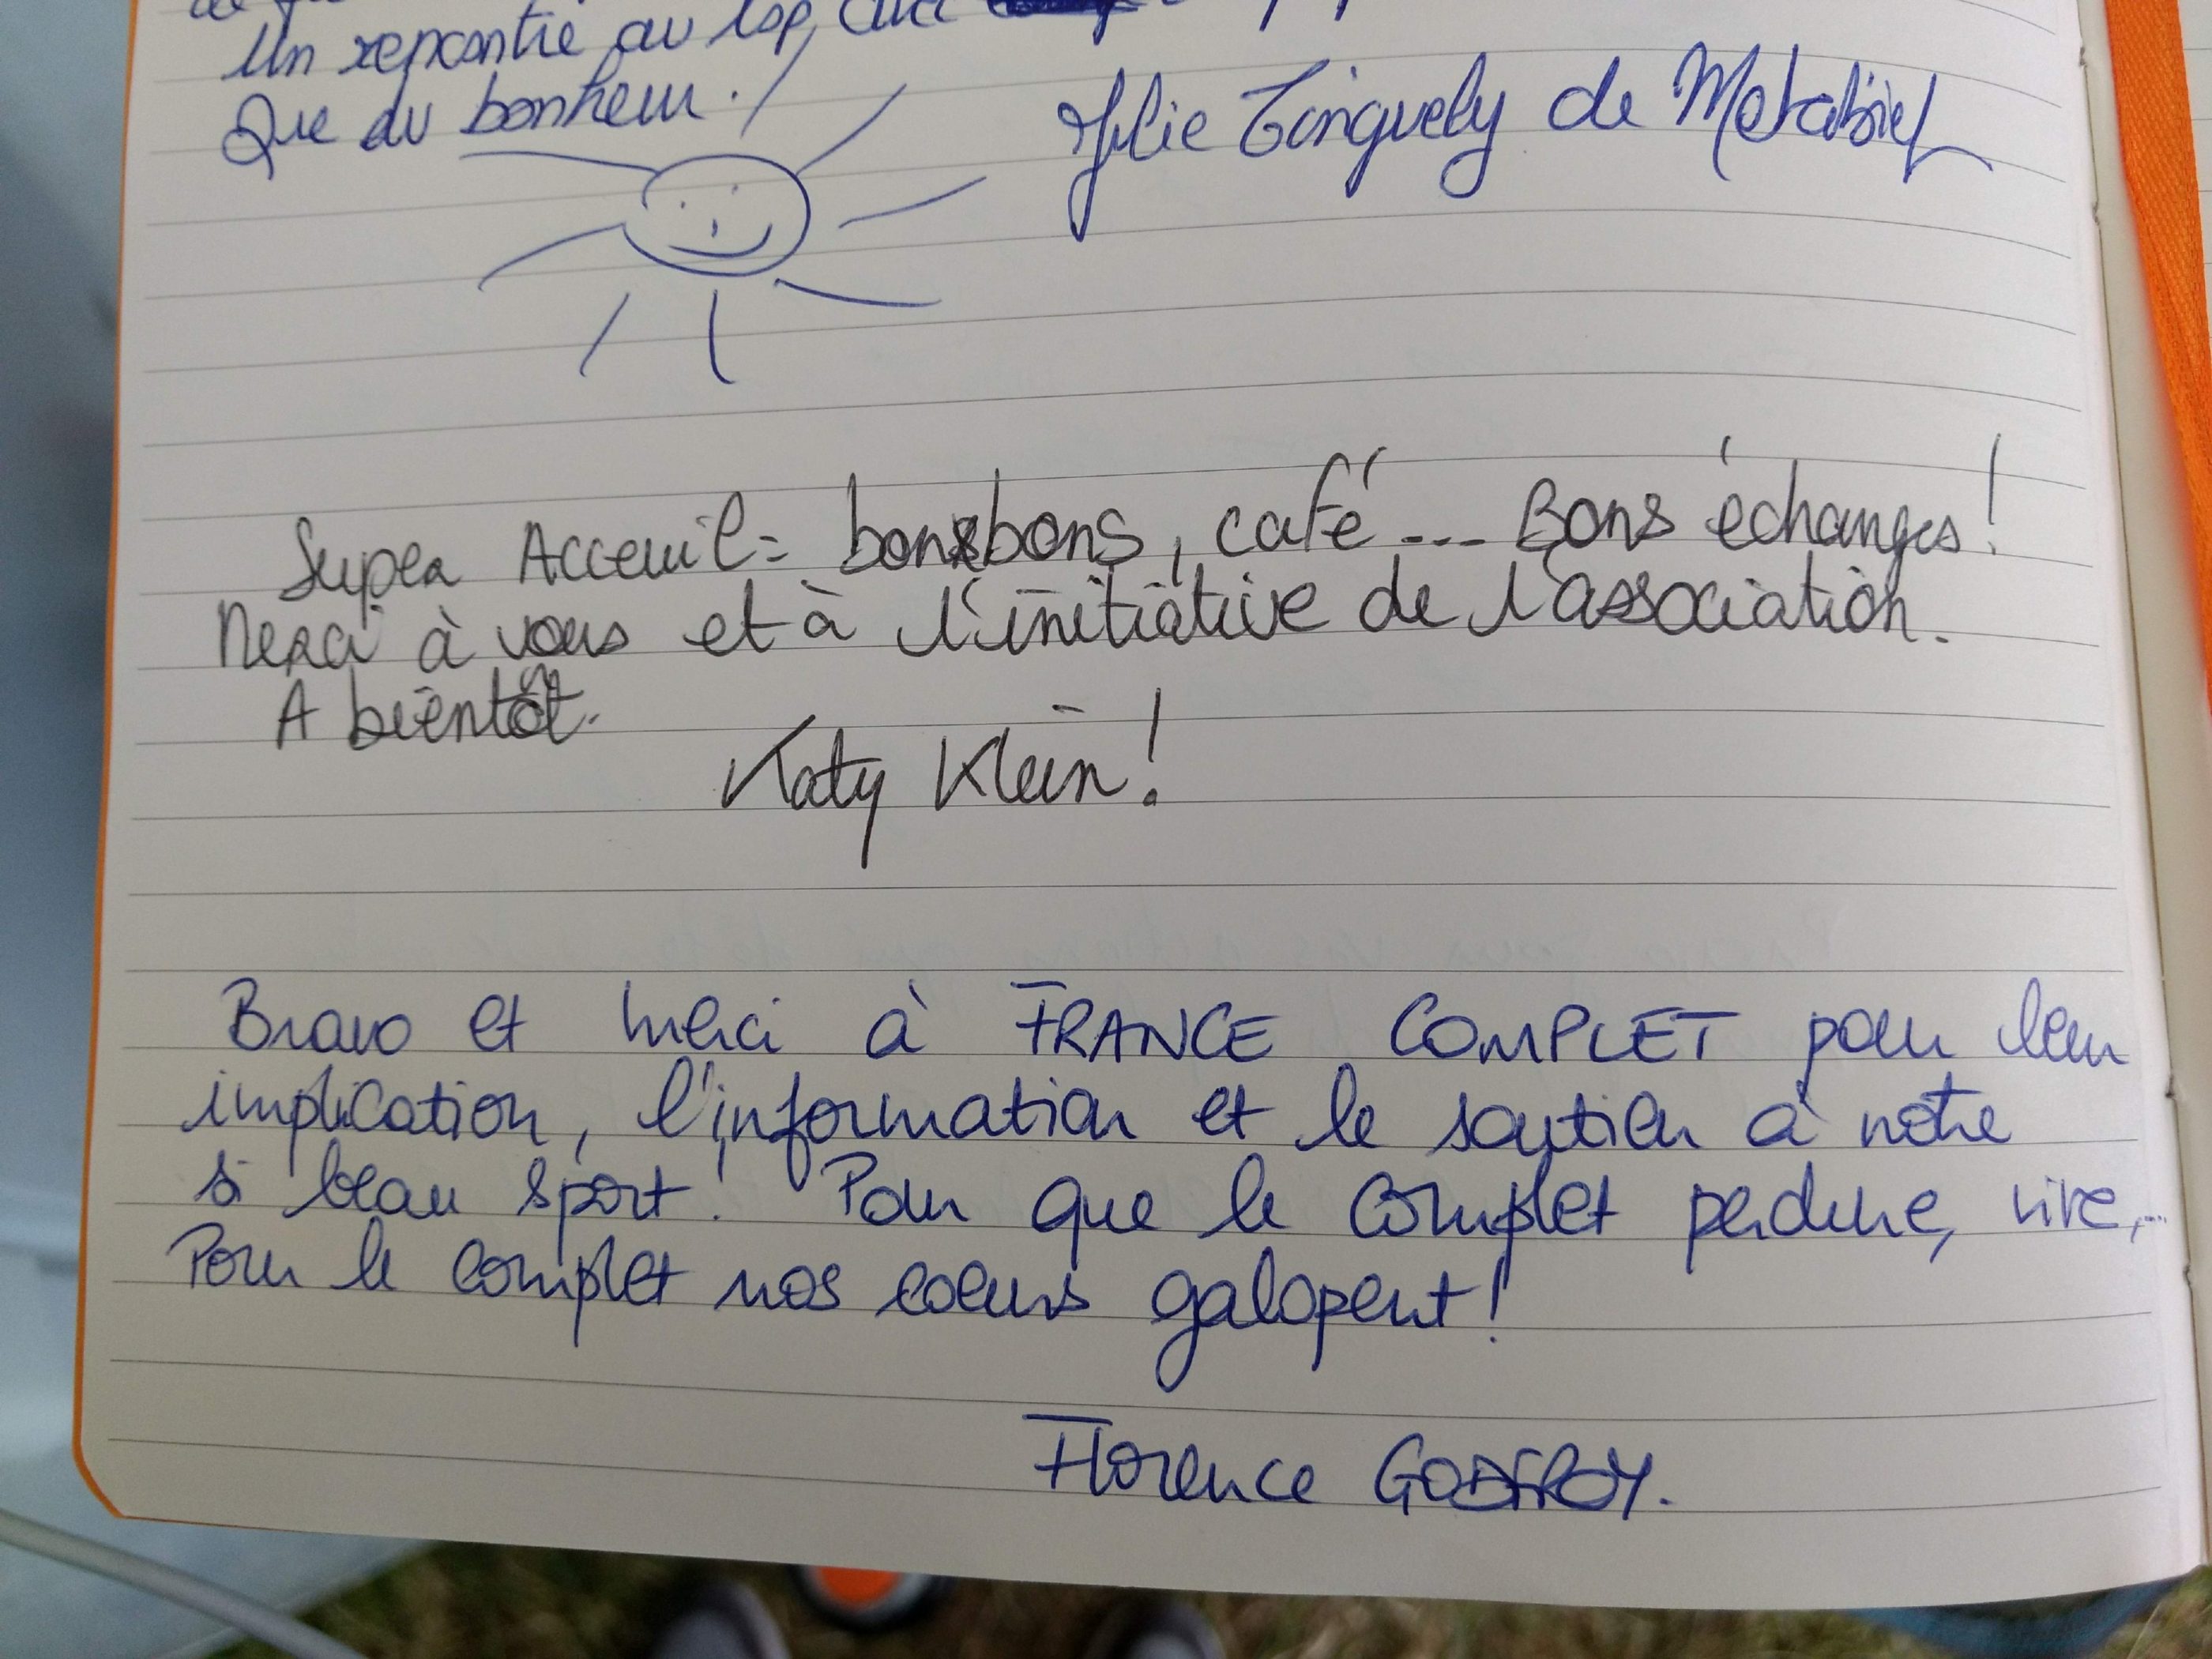 Un rencontre au top, avec
Que du bonheur !
Julie Tinguely de Metabief
Super Acceuil = bonbons, café --- Bons échanges !
Merci à vous et à l'initiative de l'association.
A bientôt.
Katy Klein !
Bravo et merci à FRANCE COMPLET pour leur
implication, l'information et le soutien à notre
si beau sport ! Pour que le Complet perdure, vive,...
Pour le complet nos coeurs galopent !
Florence GODFROY.